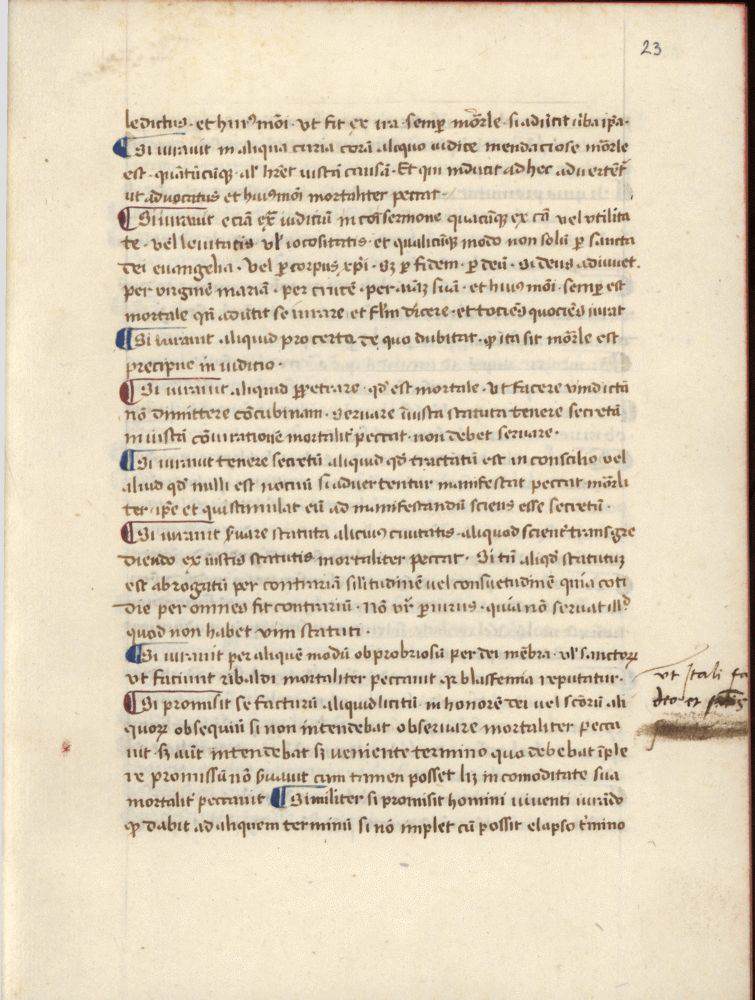 23
ledictus · et hui9mōi · vt fit ex ira · semp mōrle · si adiicit ūba ip̄a ·
¶ Si iurauit in aliqua curia corā aliquo iudice mendaciose mōrle
est · quātūcūq; al' hr̄et iustā causā · Et qui inducit ad hec aduertēt'
ut aduocatus et hui9mōi mortaliter peccat ·
¶ Si iurauit eciā ex̄ iudiciū in cōi sermone quacūq; ex cā vel vtilita
te · vel leuitatis vl' iocositatis · et qualicūq; modo non solū p sancta
dei euangelia · Vel p corpus xp̄i · Sz p fidem · p deū · Si deus adiuuet ·
per virginē mariā · per crucē · per aīaz suā · et hui9 mōi · semp est
mortale qn̄ aduertit se iurare et flm dicere · et tociēs quociēs iurat
¶ Si iurauit aliquid pro certo de quo dubitat · ꝙ ita sit mōrle est
precipue in iudicio ·
¶ Si iurauit aliquid ppetrare · qd' est mortale · Vt facere vindictā
nō dimittere cōcubinam · Seruare iīusta statuta tenere secretā
iniustā cōiurationē mortalit' peccat · non debet seruare ·
¶ Si iurauit tenere secretū aliquid qd' tractatū est in consilio vel
aliud qd' nulli est nociuū si aduertentur manifestat peccat mōrli
ter · ip̄e et qui stimulat eū ad manifestandū sciens esse secretū ·
¶ Si iurauit s̄uare statuta alicui9 ciuitatis · aliquod scient' transgre
diendo ex iustis statutis mortaliter peccat · Si tn̄ aliqd' statutuz
est abrogatū per contrariā silitudinē uel consuetudinē quia coti
die per omnes fit contrariū · Nō vr̄ piurus · quia nō seruat illd'
quod non habet vim statuti ·
¶ Si iurauit per aliquē modū obprobriosū per dei mēbra · vl' sanctoꝝ
vt faciunt ribaldi mortaliter peccauit qr blasfemia reputatur ·
vt Itali
¶ Si promisit se facturū aliquid licitū in honorē dei uel scōrū ali
quoꝝ obsequiū si non intendebat obseruare mortaliter pecca
uit · Sz aūt intendebat sz veniente termino quo debebat īple
re promissū nō s̄uauit cum tamen posset lz incomoditate sua
mortalit' peccauit ¶ Similiter si promisit homini uiuenti iurādo
ꝙ dabit ad aliquem terminū si nō implet cū possit elapso t'mino